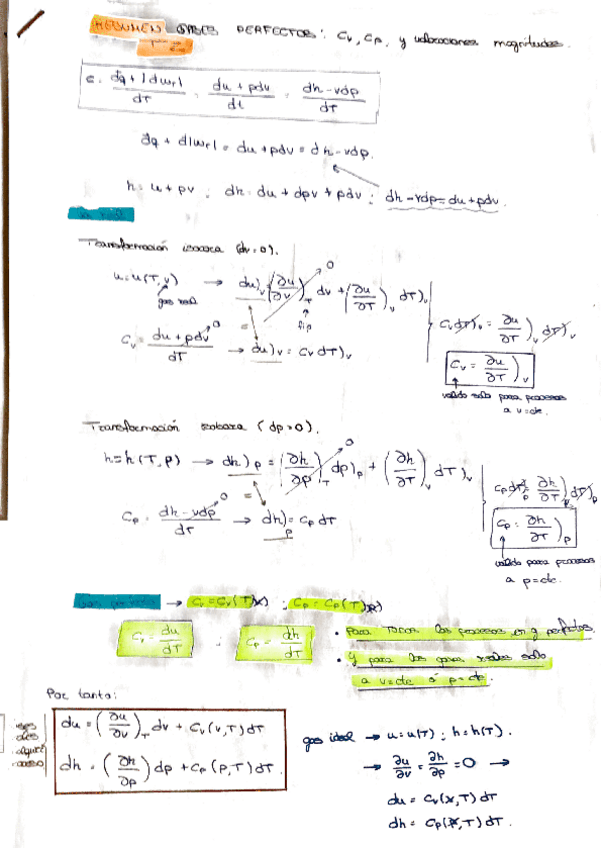 RESUMEN GASES PERFECTOS: Cv, Cp, y variaciones magnitudes.
c = đq + |dwr| / dT = du + pdv / dt = dh - vdp / dT
đq + d|wr| = du + pdv = dh - vdp.
h = u + pv ; dh = du + dpv + pdv ; dh - vdp = du + pdv.
Transformación isocora (dv=0).
u = u(T,v) → du)v = (∂u/∂v)T dv + (∂u/∂T)v dT)v
0
gas real
fijo
Cv = du + pdv / dT → du)v = Cv dT)v
0
Cv dT)v = ∂u/∂T)v dT)v
Cv = ∂u/∂T)v
valido solo para procesos
a v=cte.
Transformación isobara (dp=0).
h = h(T,p) → dh)p = (∂h/∂p)T dp)p + (∂h/∂T)v dT)v
0
Cp = dh - vdp / dT → dh)p = Cp dT
0
Cp dT)p = ∂h/∂T)p dT)p
Cp = ∂h/∂T)p
valido para procesos
a p=cte.
→ Cv = Cv(T) ; Cp = Cp(T)
Cv = du/dT ; Cp = dh/dT
• Para TODOS los procesos en g perfectos.
• Y para los gases reales solo
a v=cte ó p=cte.
Por tanto:
du = (∂u/∂v)T dv + Cv(v,T)dT
dh = (∂h/∂p) dp + Cp(p,T)dT.
gas ideal → u = u(T) ; h = h(T).
→ ∂u/∂v = ∂h/∂p = 0 →
du = Cv(v,T) dT
dh = Cp(p,T) dT.